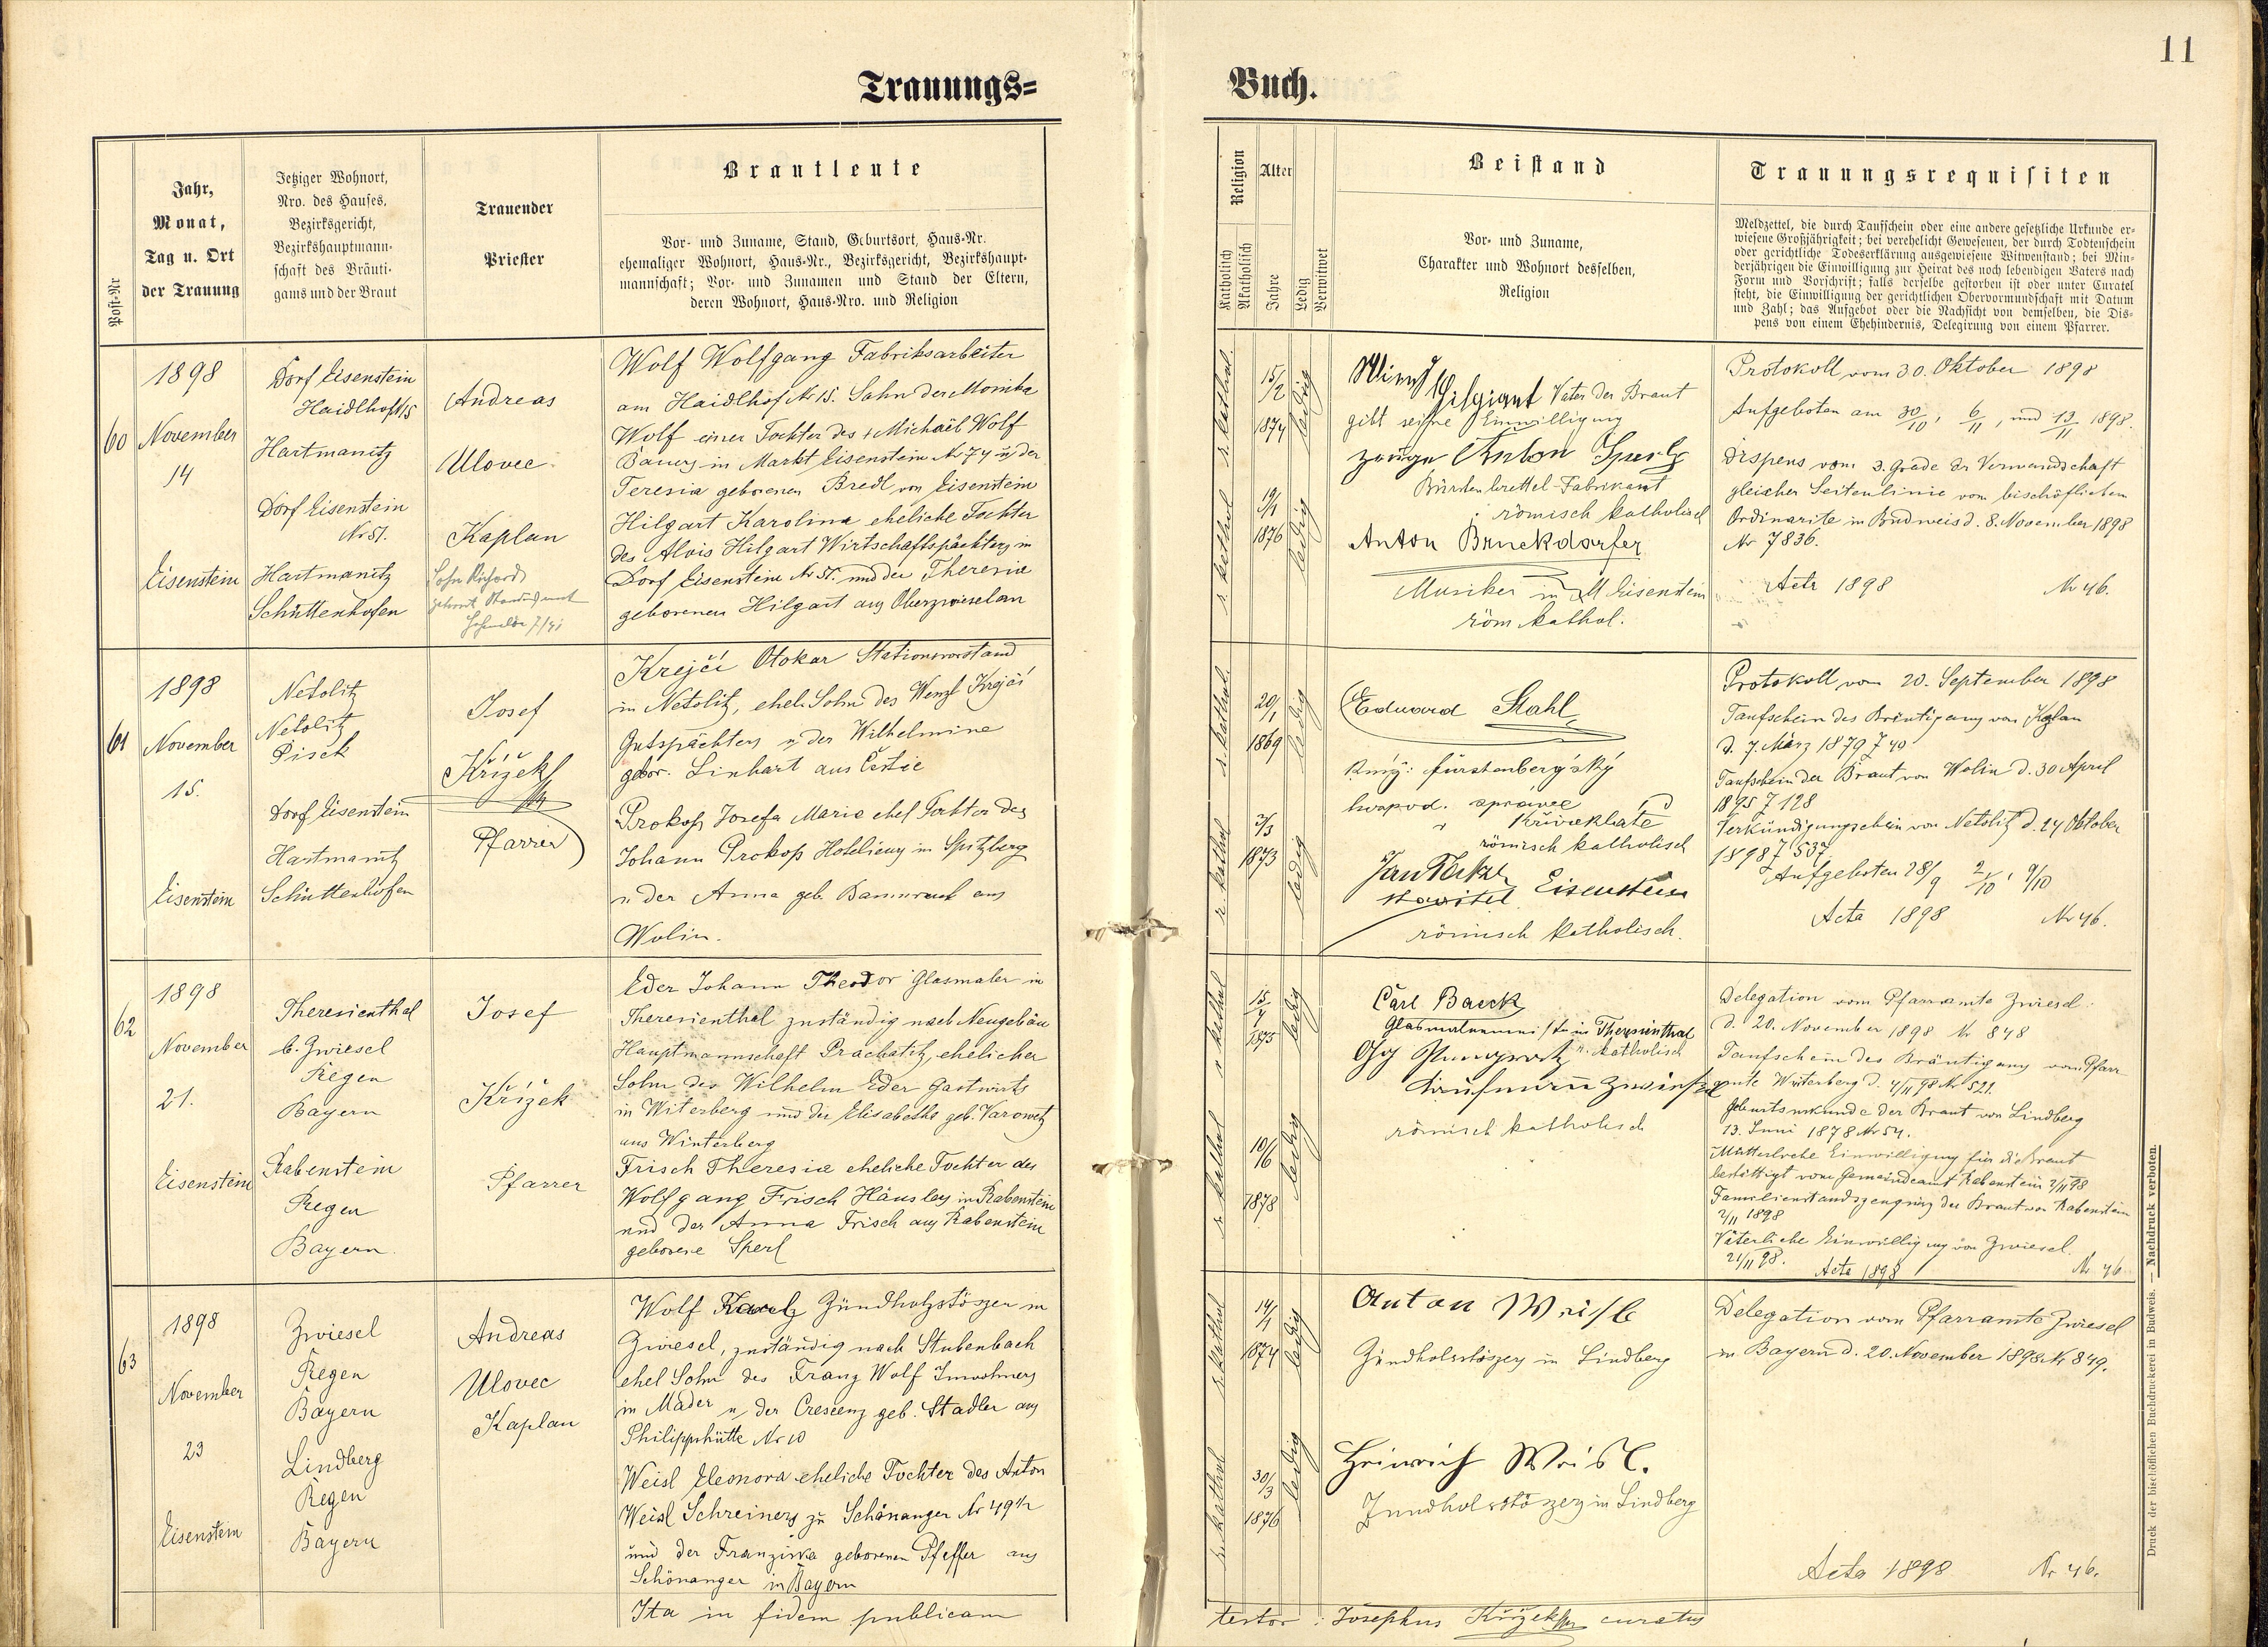 11
Trauungs=
Buch.
Post-Nr
Jahr,
Monat,
Tag u. Ort
der Trauung
Jetziger Wohnort,
Nro. des Hauses,
Bezirksgericht,
Bezirkshauptmann-
schaft des Bräuti-
gams und der Braut
Trauender
Priester
Brautleute
Vor- und Zuname, Stand, Geburtsort, Haus-Nr.
ehemaliger Wohnort, Haus-Nr., Bezirksgericht, Bezirkshaupt-
mannschaft; Vor- und Zunamen und Stand der Eltern,
deren Wohnort, Haus-Nro. und Religion
Religion
Katholisch
Akatholisch
Alter
Jahre
Ledig
Verwitwet
Beistand
Vor- und Zuname,
Charakter und Wohnort desselben,
Religion
Trauungsrequisiten
Meldzettel, die durch Taufschein oder eine andere gesetzliche Urkunde er-
wiesene Großjährigkeit; bei verehelicht Gewesenen, der durch Todtenschein
oder gerichtliche Todeserklärung ausgewiesene Witwenstand; bei Min-
derjährigen die Einwilligung zur Heirat des noch lebendigen Vaters nach
Form und Vorschrift; falls derselbe gestorben ist oder unter Curatel
steht, die Einwilligung der gerichtlichen Obervormundschaft mit Datum
und Zahl; das Aufgebot oder die Nachsicht von demselben, die Dis-
pens von einem Ehehindernis, Delegirung von einem Pfarrer.
60
1898
November
14
Eisenstein
Dorf Eisenstein
Haidlhof N 15
Hartmanitz
Dorf Eisenstein
Nr 51.
Hartmanitz
Schüttenhofen
Andreas
Ulovec
Kaplan
Wolf Wolfgang Fabriksarbeiter
am Haidlhof Nr 15. Sohn der Monika
Wolf einer Tochter des + Michael Wolf
Bauers in Markt Eisenstein Nr 74 u. der
Teresia geborenen Bredl von Eisenstein
Hilgart Karolina eheliche Tochter
des Alois Hilgart Wirtschaftspächters in
Dorf Eisenstein Nr 51. und der Theresia
geborenen Hilgart aus Oberzwieselau
r. kathol.
15/2
1874
ledig
r. kathol
19/1
1876
ledig
Hilgart Vater der Braut
gibt seine Einwilligung
zeuge Anton
Bürstenbrettel-Fabrikant
römisch katholisch
Anton Bruckdorfer
Musiker in M Eisenstein
röm. kathol.
Protokoll vom 30. Oktober 1898
Aufgeboten am 30/10, 6/11, und 13/11 1898.
Dispens vom 3. Grade der Verwandschaft
gleicher Seitenlinie vom bischöflichem
Ordinarite in Budweis d. 8. November 1898
Nr 7836.
Acta 1898 Nr 46.
61
1898
November
15.
Eisenstein
Netolitz
Netolitz
Pisek
Dorf Eisenstein
Hartmanitz
Schüttenhofen
Josef
Křížek
Pfarrer
Krejčí Otokar Stationsvorstand
in Netolitz, ehel. Sohn des Wenzl Krejčí
Gutspächters u. der Wilhelmine
gebor. Linhart aus Čestic
Prokop Josefa Maria ehel Tochter des
Johann Prokop Hoteliers in Spitzberg
u. der Anna geb. aus
Wolin.
r. kathol.
20/1
1869
ledig
r. kathol
3/3
1873
ledig
Eduard Stahl
kníž: fürstenberg'ský
hospod. správce
Křivoklátě
römisch katholisch
Jan
stavitel Eisenstein
römisch katholisch.
Protokoll vom 20. September 1898
Taufschein des Bräutigams von
d. 7. März 1879 740
Taufschein der Braut von Wolin d. 30 April
1895 7 128
Verkündigungschein von Netolitz d. 24 Oktober
1898 7 537
Aufgeboten 28/9 2/10, 9/10
Acta 1898 Nr 46.
62
1898
November
21.
Eisenstein
Theresienthal
b. Zwiesel
Regen
Bayern
Rabenstein
Regen
Bayern.
Josef
Křížek
Pfarrer
Eder Johann Theodor Glasmaler in
Theresienthal zuständig nach Neugebäu
Hauptmannschaft Prachatitz, ehelicher
Sohn des Wilhelm Eder Gastwirts
in Witerberg und der Elisabetha geb. Karowetz
aus Winterberg
Frisch Theresia eheliche Tochter des
Wolfgang Frisch Häuslers in Rabenstein
und der Anna Frisch aus Rabenstein
geborene Sperl
r. kathol
15/4
1875
ledig
r. kathol
10/6
1878
ledig
Carl Baeck
in Theresienthal
r. katholisch
Kaufmann Zwiesel
römisch katholisch
Delegation vom Pfarramte Zwiesel
d. 20. November 1898 Nr 848
Taufschein des Bräutigams vom Pfarr
amte Winterberg d. 4/11 98 Nr 521.
Geburtsurkunde der Braut von Lindberg
13. Juni 1878 Nr 54.
Mütterliche Einwilligung für die Braut
bestättigt vom Gemeindeamt Rabenstein 2/11 98
Familienstandszeugnis der Braut von Rabenstein
2/11 1898
Väterliche Einwilligung von Zwiesel.
21/11 98.
Acta 1898 Nr 46
63
1898
November
23
Eisenstein
Zwiesel
Regen
Bayern
Lindberg
Regen
Bayern
Andreas
Ulovec
Kaplan
Wolf Karl Zündholzstöszer in
Zwiesel, zuständig nach Stubenbach
ehel Sohn des Franz Wolf Inwohners
in Mader u. der Crescenz geb. Stadler aus
Philippshütte Nr 10
Weisl Eleonora eheliche Tochter des Anton
Weisl Schreiners zu Schönanger Nr 49 1/2
und der Franziska geborenen Pfeffer aus
Schönanger in Bayern
r. kathol
14/1
1874
ledig
r. kathol
30/3
1876
ledig
Anton Weisl
Zündholzstöszer in Lindberg
Heinrich Weisl.
Zündholzstöszer in Lindberg
Delegation vom Pfarramte Zwiesel
in Bayern d. 20. November 1898 Nr 849.
Acta 1898 Nr 46.
Ita in fidem publicam
testor : Josephus Křížek curatus
Druck der bischöflichen Buchdruckerei in Budweis. — Nachdruck verboten.